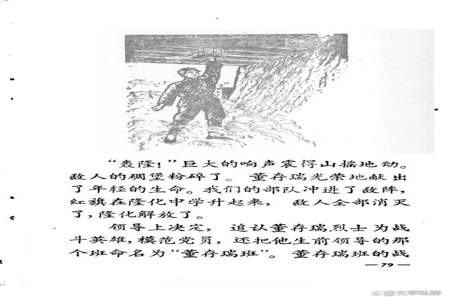 “轰隆!”巨大的响声震得山摇地动。
敌人的碉堡粉碎了。 董存瑞光荣地献出
了年轻的生命。我们的部队冲进了敌阵,
红旗在隆化中学升起来, 敌人全部消灭
了,隆化解放了。
领导上决定, 追认董存瑞烈士为战
斗英雄,模范党员,还把他生前领导的那
个班命名为“董存瑞班”。 董存瑞班的战
— 79 —